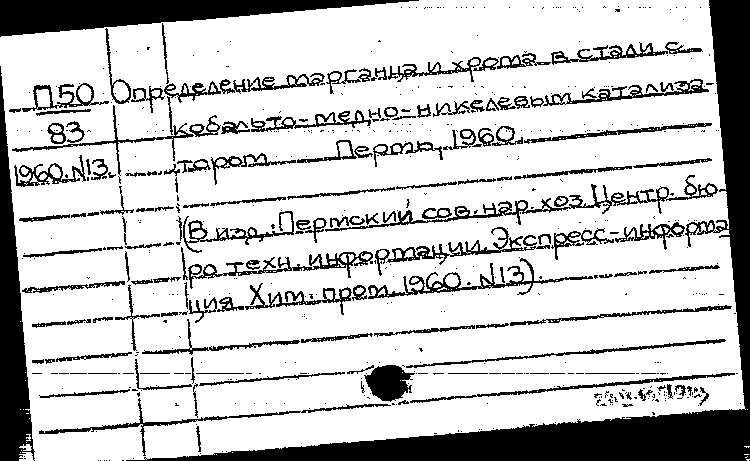 П50 Определение марганца и хрома в стали с
83 кобальто-медно-никелевым катализа-
1960.N13 тором Пермь, 1960.
(В изд.: Пермский сов. нар. хоз Центр. бю-
ро техн. информации. Экспресс-информа
ция Хим. пром. 1960. N13).